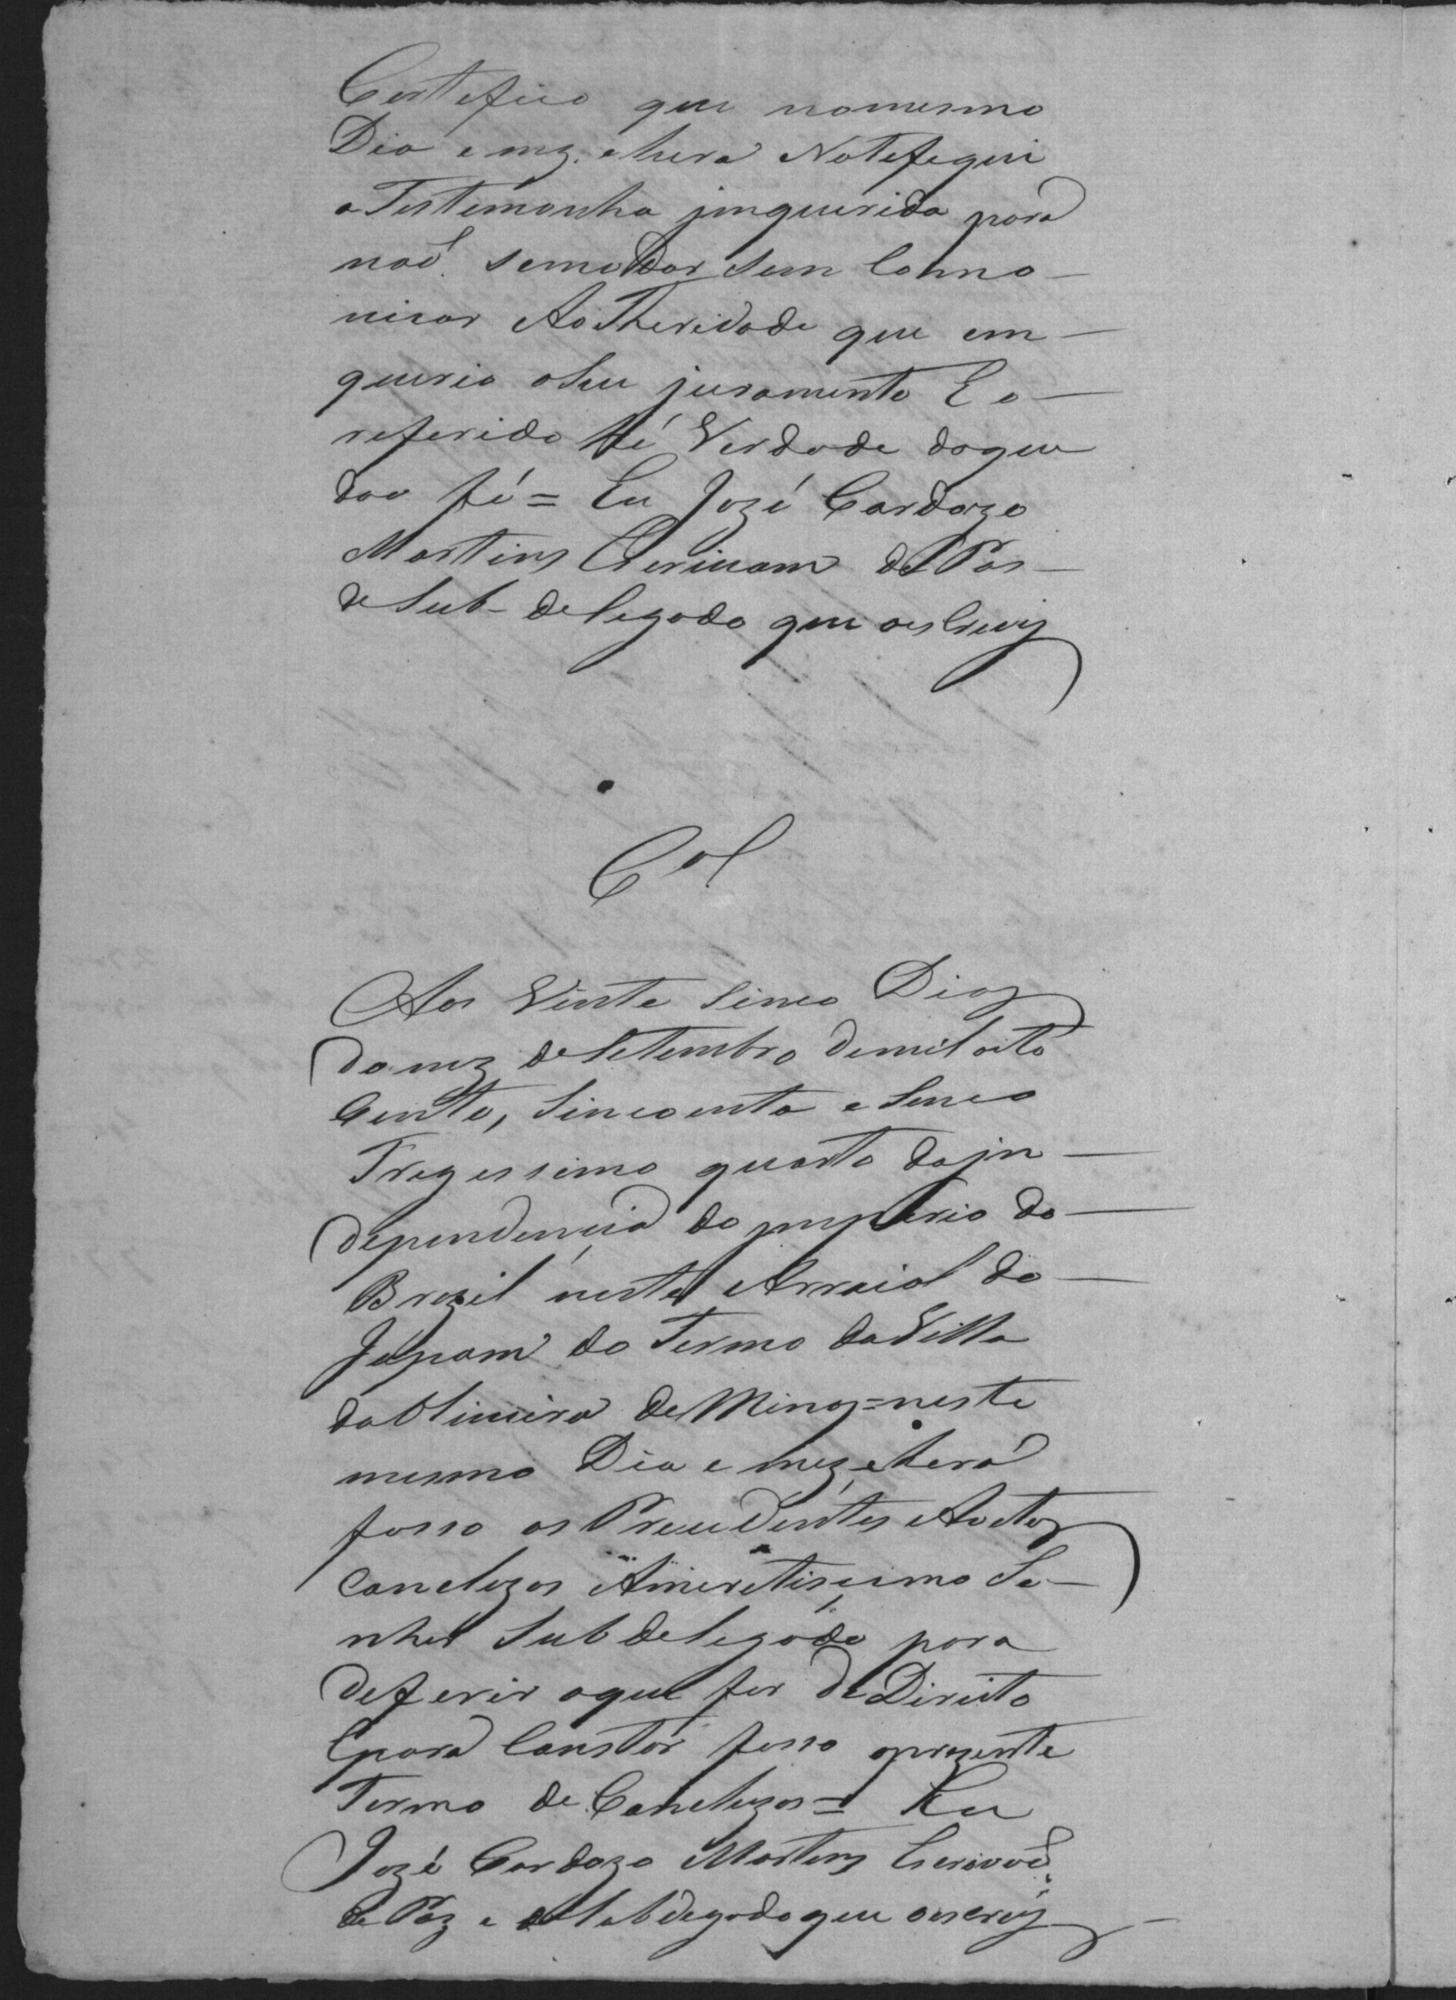 Certefico que nomesmo
Dia emez. ehera Notefiquei
a Testemonha jnquerida para
naõ. semudar sem Comno-
nicar AoTheridade que em-
querio oseu juramento E o-
referido hé Verdade doque
dou fé = Eu Jozé Cardozo
Martins Escrivam de Pas-
e Sub-delegado que oescrevy
Col
Aos Vinte sinco Dias
domez deSetembro demil oito
Cento, Sincoenta e Sinco
Tregessimo quarto dajn-
dependencia do jmperio do-
Brazil neste Arraial do-
Japam do Termo daVilla
daOliveira deMinas=neste
mesmo Dia e mez, eherá
fasso os Precedentes Aoctos
Concluzos Ameretissimo Se-
nhor Subdelegado para
deferir oque for deDireito
Epara Constar fasso oprezente
Termo de Concluzos = Eu
Jozé Cardozo Martins Escrivaõ
de Paz e Subdegado que oescrevy